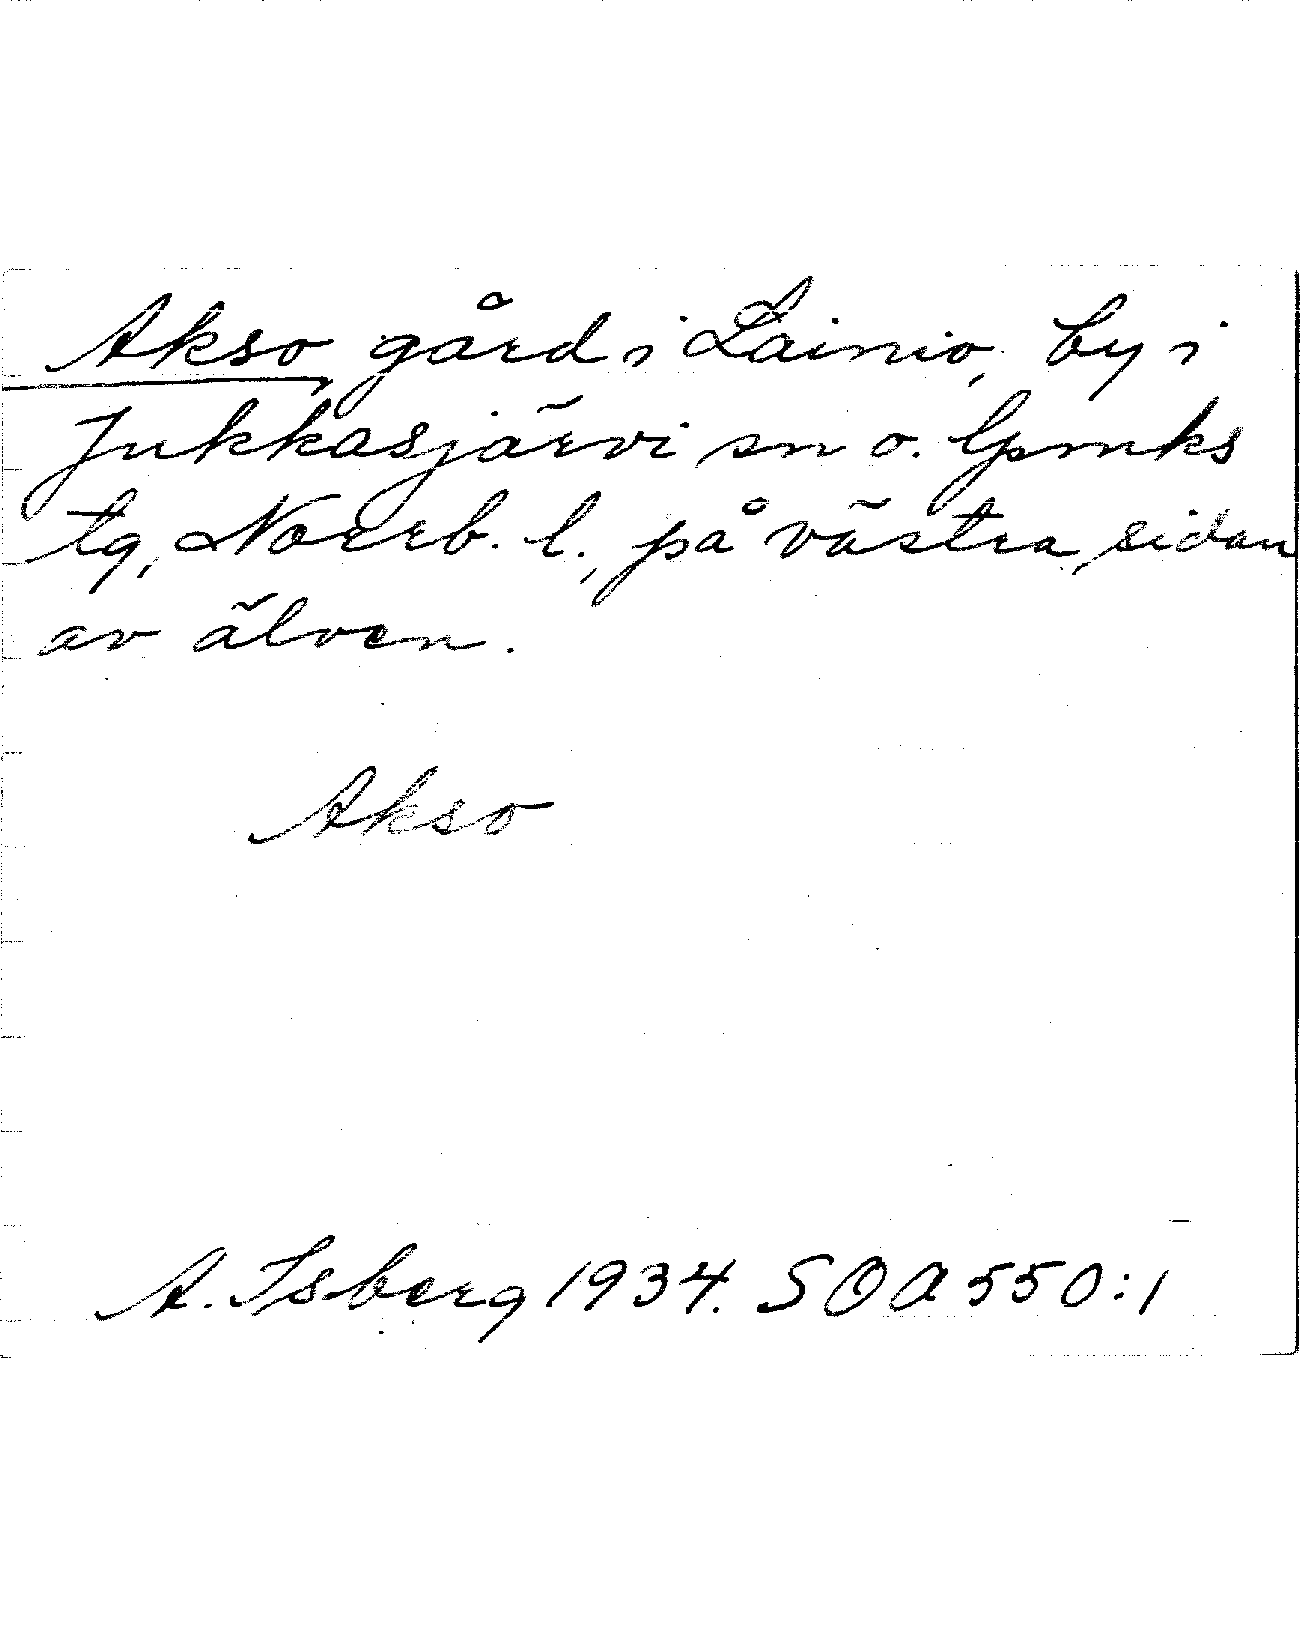 Akso, gård i Lainio, by i
Jukkasjärvi sn o. lpmks
tg, Norrb. l., på västra sidan
av älven.
Akso
A. Isberg 1934. SOA 550:1